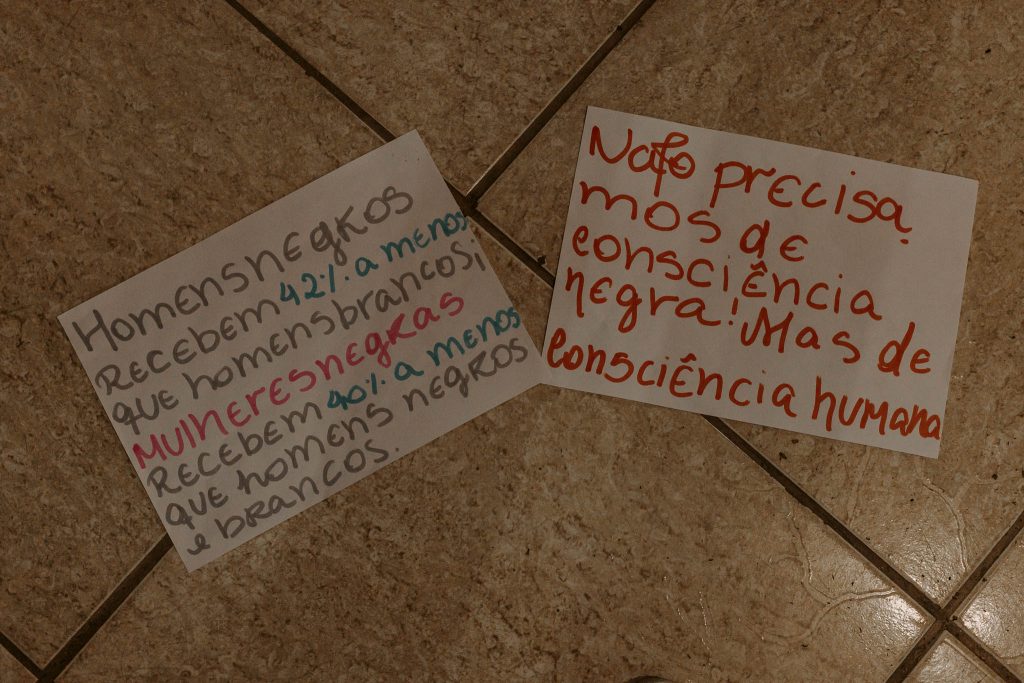 Homens negros
RECEBEM 42% a menos
que homens brancos;
MULHERES negras
RECEBEM 40% a menos
que homens negros
e brancos.
Não precisa
mos de
consciência
negra! Mas de
consciência humana